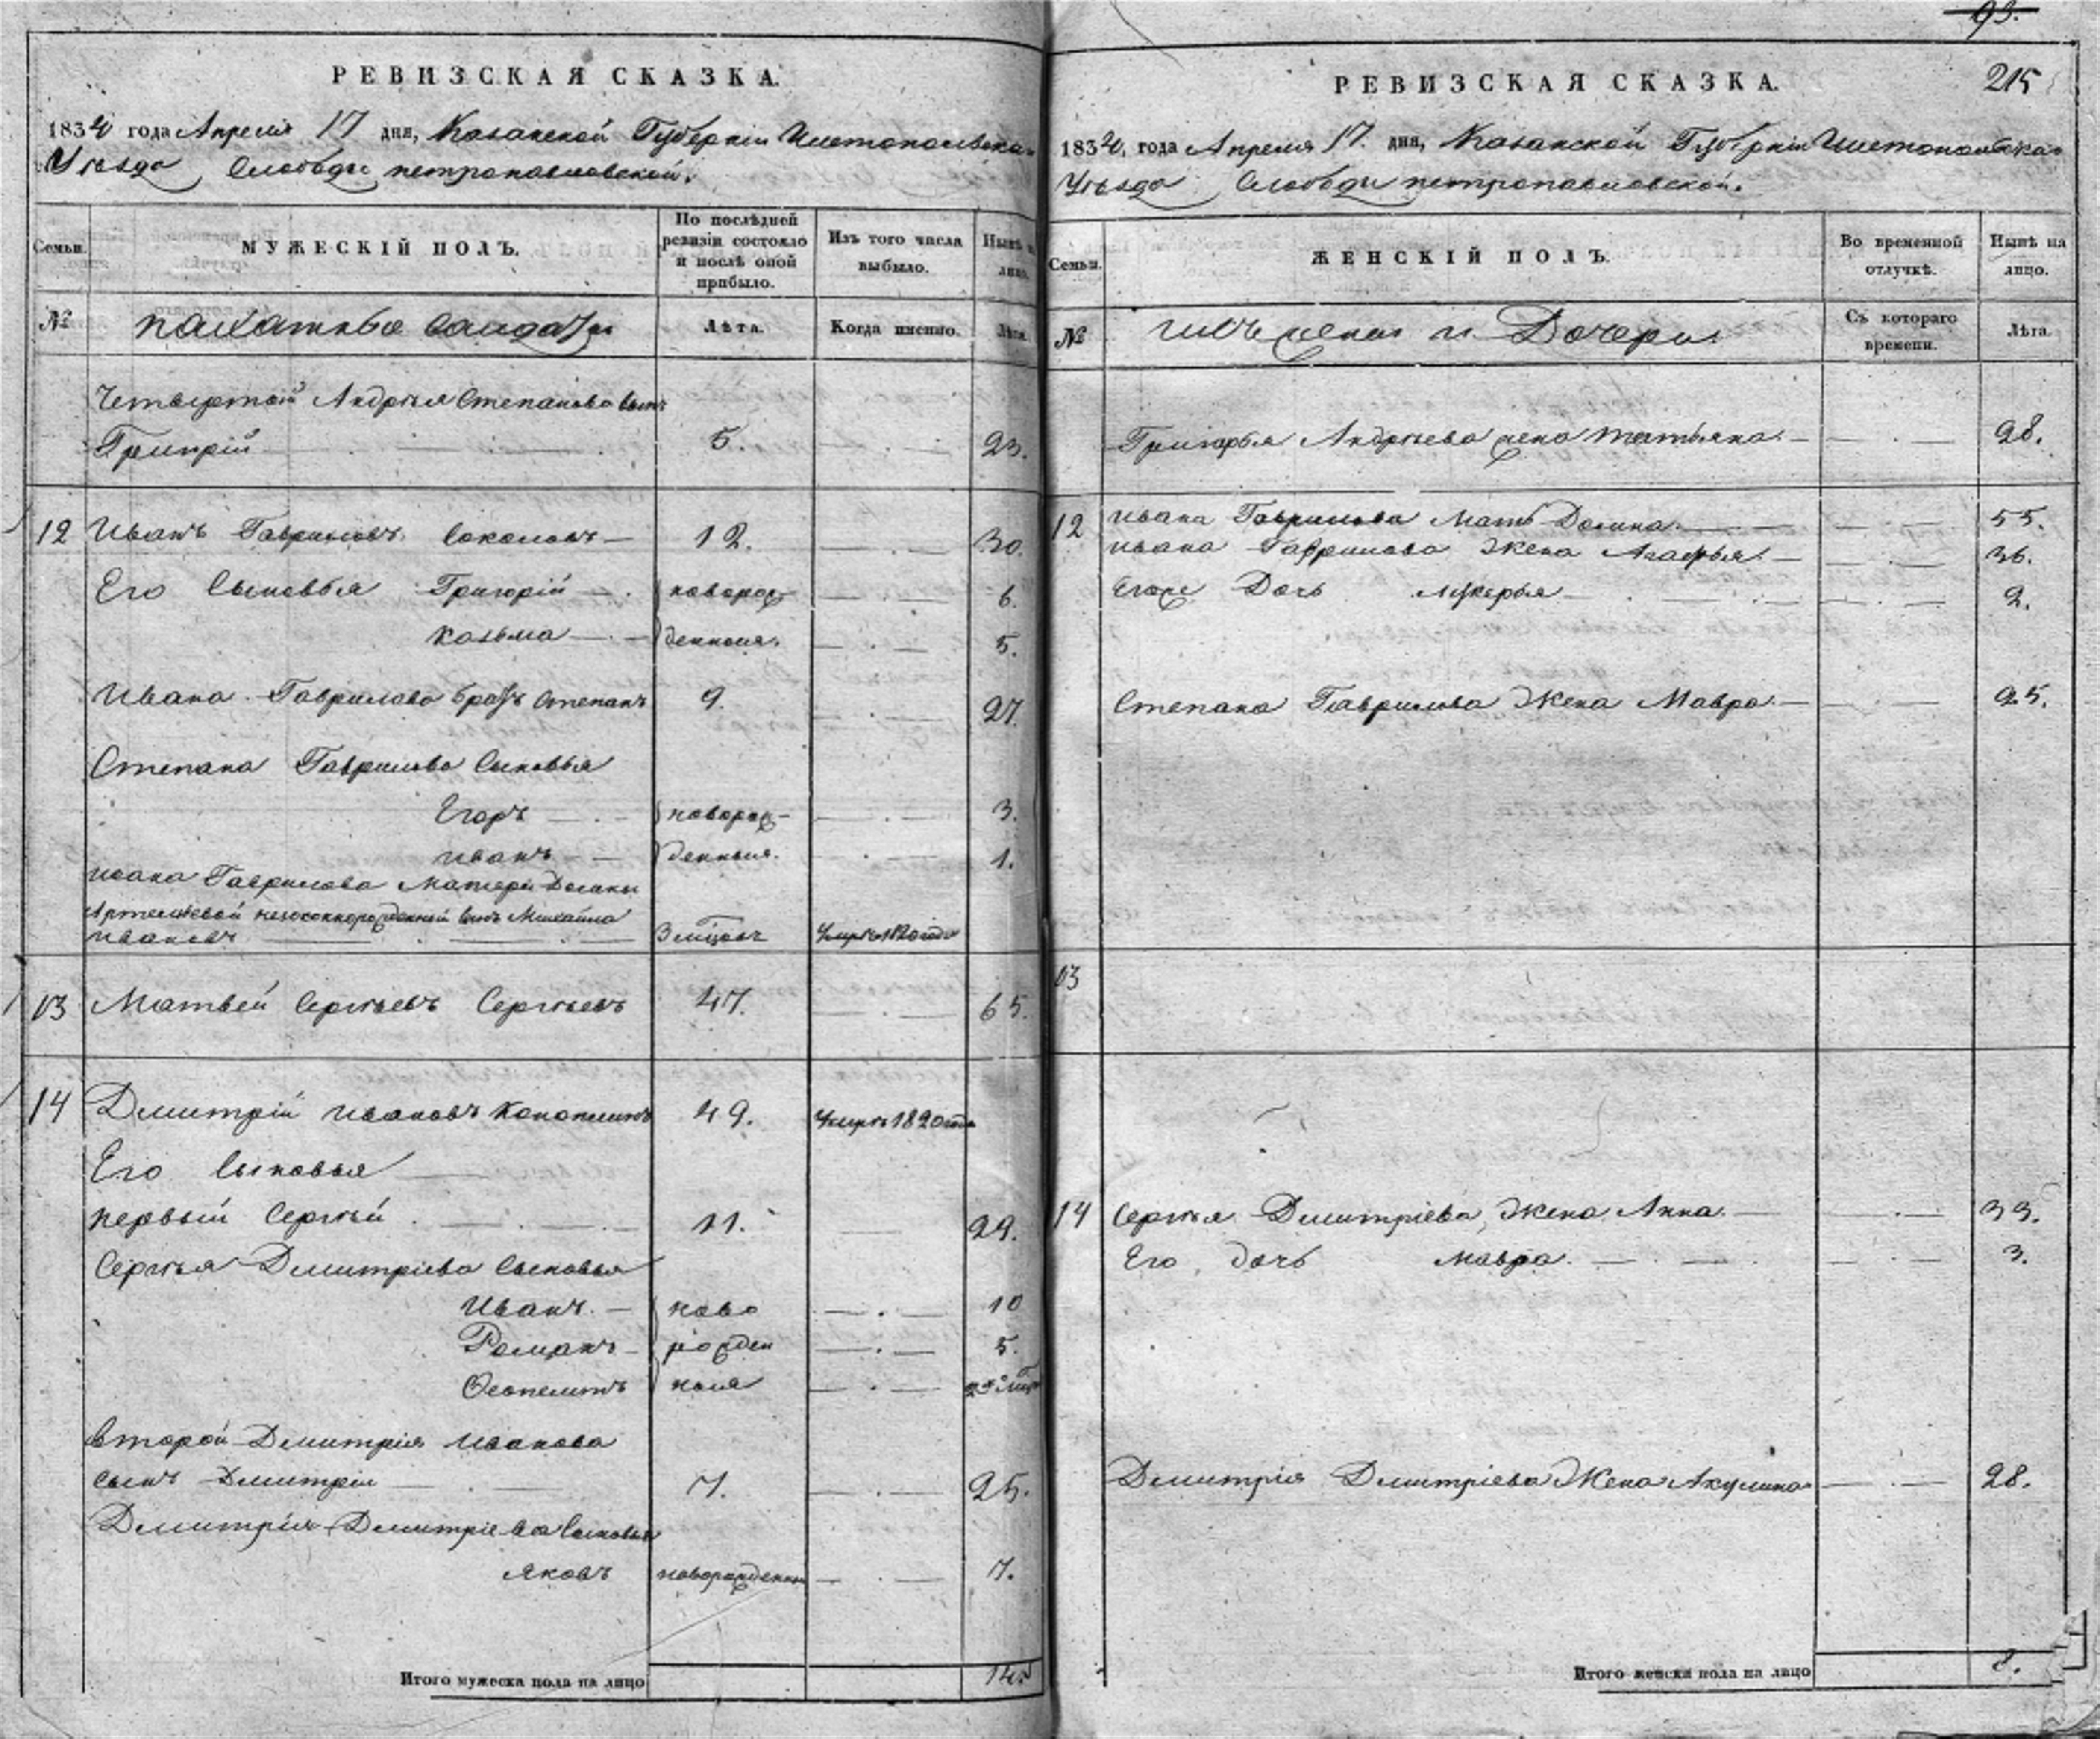 РЕВИЗСКАЯ СКАЗКА.
1834 года Апреля 17 дня, Казанской Губернiи Чистопольскаго
Уѣзда Слободы петропавловской.
Семьи.
МУЖЕСКIЙ ПОЛЪ.
По послѣдней ревизiи состояло и послѣ оной прибыло.
Изъ того числа выбыло.
Нынѣ на лицо.
№
пахатныя солдаты
Лѣта.
Когда именно.
Лѣта.
Четвертой Андрѣя Степанова сынъ
Григорiй 5. 23.
12 Иванъ Гавриловъ Соколовъ 12. 30.
Его Сыновья Григорiй новорож- 6.
Козьма денныя. 5.
Ивана Гаврилова братъ Степанъ 9. 27.
Степана Гаврилова Сыновья
Егоръ новорож- 3.
Иванъ денныя. 1.
Ивана Гаврилова Матери Домны
незаконнорожденный сынъ Михайла
Ивановъ Умръ 1820 года
13 Матвей Сергѣевъ Сергѣевъ 47. 65.
14 Дмитрiй Ивановъ Конопелинъ 49. Умръ 1820 года
Его Сыновья
первый Сергѣй 11. 29.
Сергѣя Дмитрiева Сыновья
Иванъ. ново 10
Романъ рожден 5.
ныя
второй Дмитрiя Иванова
сынъ Дмитрiй 7. 25.
Дмитрiя Дмитрiева Сыновья
Яковъ новорожденный 7.
Итого мужеска пола на лицо 14.
93.
215
РЕВИЗСКАЯ СКАЗКА.
1834 года Апреля 17. дня, Казанской Губернiи Чистопольскаго
Уѣзда Слободы петропавловской.
Семьи.
ЖЕНСКIЙ ПОЛЪ.
Во временной отлучкѣ.
Нынѣ на лицо.
№
ихъ жены и Дочери
Съ котораго времени.
Лѣта.
Григорья Андрѣева жена татьяна 28.
12 Ивана Гаврилова Мать Домна 55.
Ивана Гаврилова Жена Агафья 36.
Егоже Дочь Лукерья 2.
Степана Гаврилова Жена Мавра 25.
13
14 Сергѣя Дмитрiева Жена Анна 33.
Его дочь Мавра. 3.
Дмитрiя Дмитрiева Жена Акулина 28.
Итого женска пола на лицо 8.